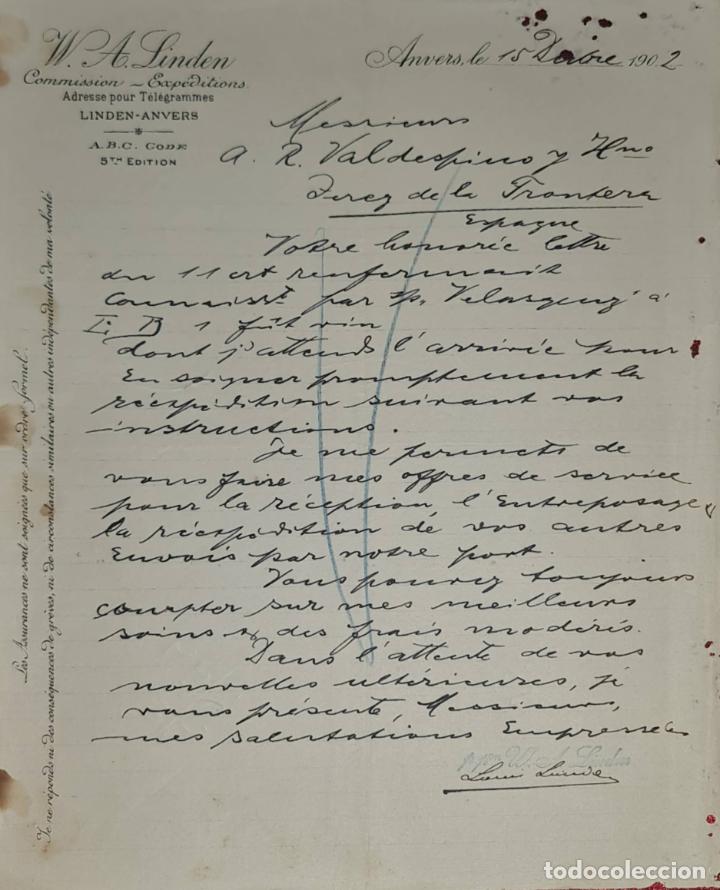 W. A. Linden
Commission - Expéditions.
Adresse pour Télégrammes
LINDEN-ANVERS
A.B.C. CODE
5TH EDITION
Anvers, le 15 Dcbre 1902
Messieurs
A. R. Valdespino y Hno
Jerez de la Frontera
Espagne
Votre honorée lettre
du 11 crt renfermait
connaisst par sp. Velasquez à
1 fût vin
dont j'attends l'arrivée pour
en soigner promptement la
réexpédition suivant vos
instructions.
Je me permets de
vous faire mes offres de service
pour la réception, l'Entreposage
la réexpédition de vos autres
Envois par notre port.
Vous pouvez toujours
compter sur mes meilleurs
soins & des frais modérés.
Dans l'attente de vos
nouvelles ultérieures, je
vous présente, Messieurs,
mes salutations Empressées
ppon W. A. Linden
Louis Linden
Les Assurances ne sont soignées que sur ordre formel.
Je ne réponds ni des conséquences de grèves, ni de circonstances similaires ou autres indépendantes de ma volonté
todocoleccion.net